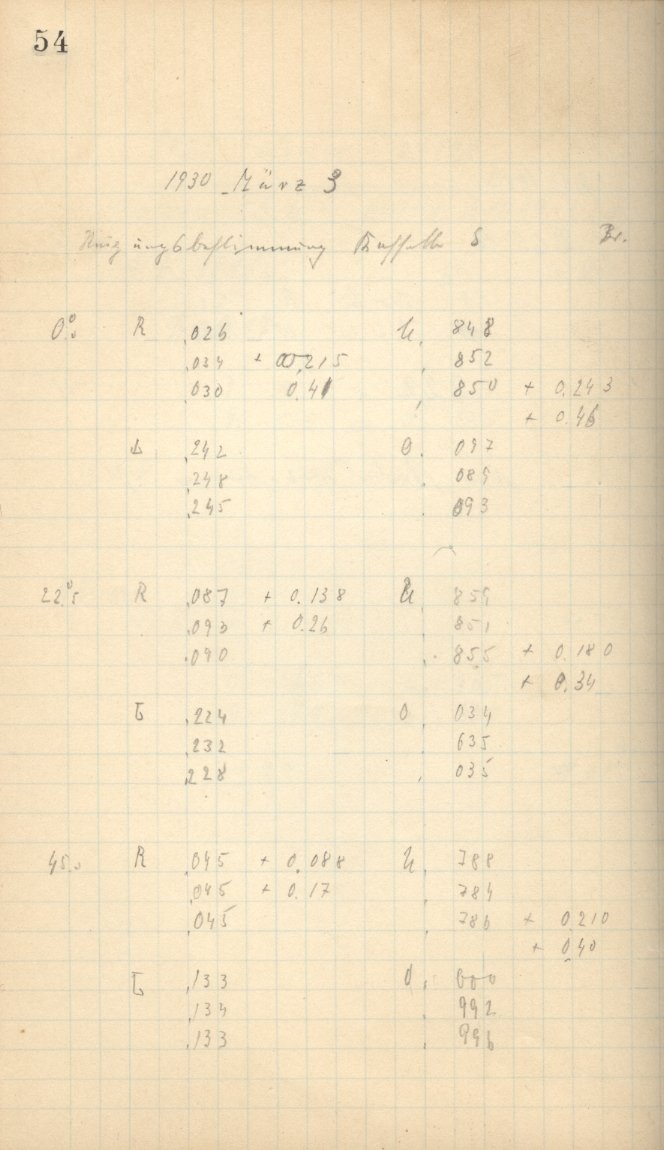 54
1930 März 3
Neigungsbestimmung Kassette S Br.
0°.0 R ,026 U, 848
,034 + 0,215 , 852
,030 0.41 , 850 + 0.243
+ 0.46
L ,242 O, 097
,248 , 089
,245 , 093
22°.5 R ,087 + 0.138 U 859
,093 + 0.26 851
,090 , 855 + 0.180
+ 0.34
L ,224 O, 034
,232 035
,228 , 035
45.0 R ,045 + 0.088 U, 788
,045 + 0.17 784
,045 , 786 + 0.210
+ 0,40
L ,133 O, 000
,134 , 992
,133 , 996